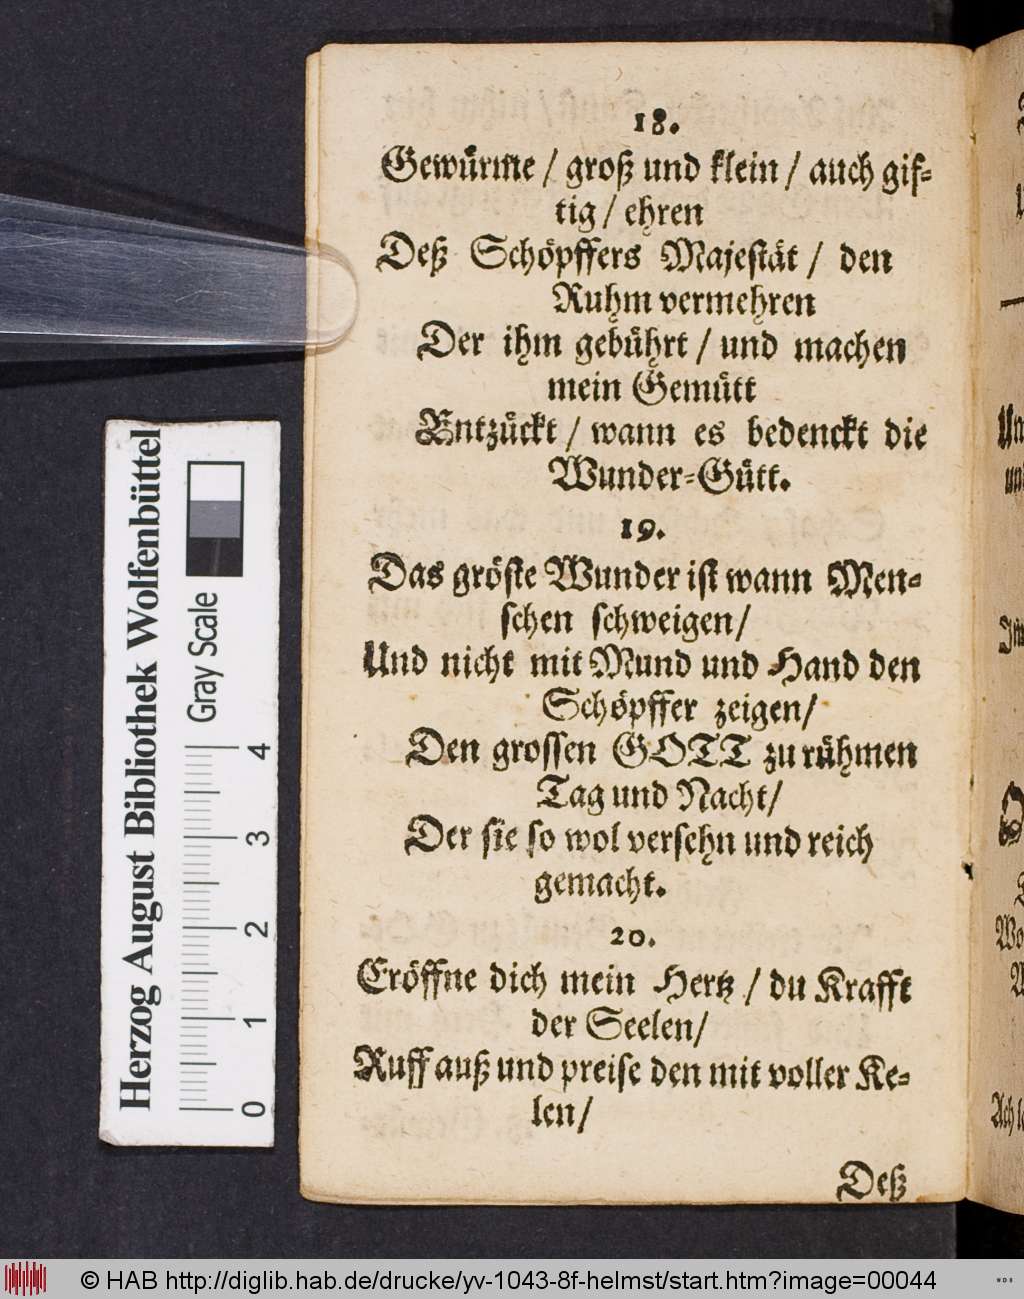 18.
Gewürme / groß und klein / auch gif-
tig / ehren
Deß Schöpffers Majestät / den
Ruhm vermehren
Der ihm gebührt / und machen
mein Gemütt
Entzückt / wann es bedenckt die
Wunder-Gütt.
19.
Das gröste Wunder ist wann Men-
schen schweigen/
Und nicht mit Mund und Hand den
Schöpffer zeigen/
Den grossen GOTT zu rühmen
Tag und Nacht/
Der sie so wol versehn und reich
gemacht.
20.
Eröffne dich mein Hertz / du Krafft
der Seelen/
Ruff auß und preise den mit voller Ke-
len/
Deß
Herzog August Bibliothek Wolfenbüttel
Gray Scale
0 1 2 3 4
© HAB http://diglib.hab.de/drucke/yv-1043-8f-helmst/start.htm?image=00044